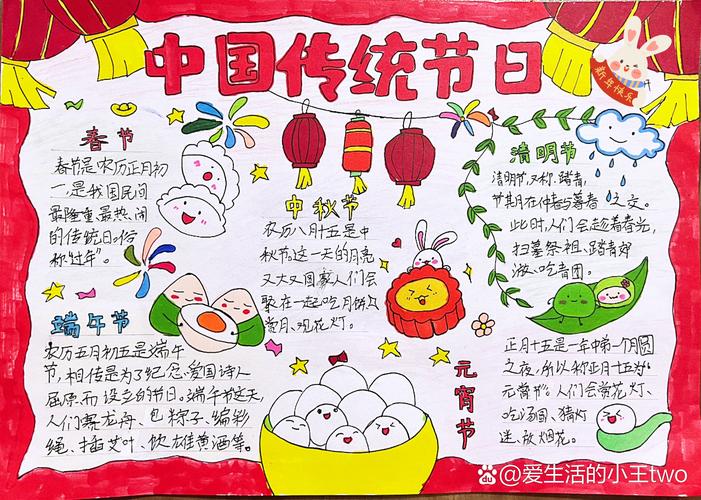 中国传统节日
新年快乐
春节
春节是农历正月初
一,是我国民间
最隆重、最热闹
的传统日俗
称“过年”。
中秋节
农历八月十五是中
秋节。这一天的月亮
又大又圆家人们会
聚在一起吃月饼
赏月、观花灯。
清明节
清明节,又称踏青
节其月在仲春与暮春之交。
此时,人们会趁着春光,
扫墓祭祖、踏青郊
游、吃青团。
端午节
农历五月初五是端午
节,相传是为了纪念爱国诗人
屈原而设立的节日。端午节这天,
人们赛龙舟、包粽子、编彩
绳、插艾叶、饮雄黄酒等。
元宵节
正月十五是一年中第一个月圆
之夜,所以称正月十五为“
元宵节”。人们会赏花灯、
吃汤圆、猜灯
迷、放烟花。
Bai du @爱生活的小王two